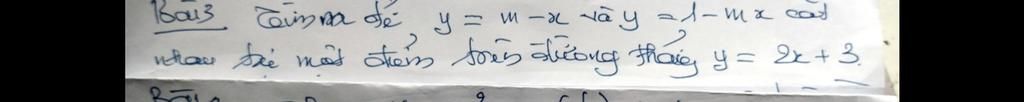 Bài 3 Tìm m để y = m - x và y = 1 - mx cắt
nhau tại một điểm trên đường thẳng y = 2x + 3.
Bài